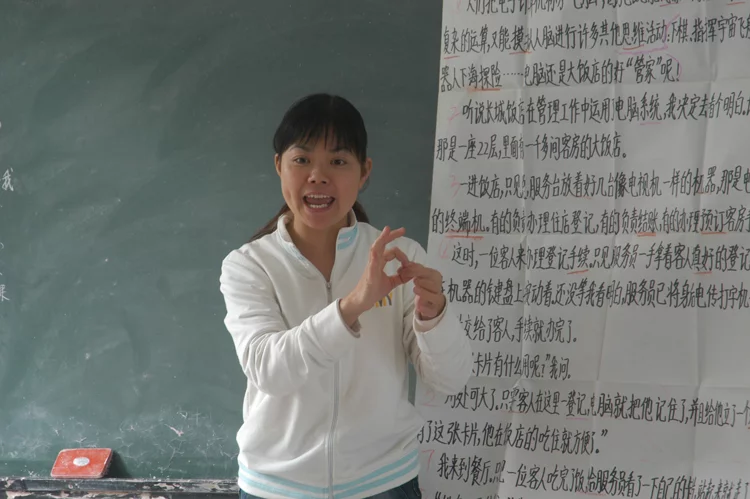 我
复杂的运算,又能模拟人脑进行许多其他思维活动:下棋、指挥宇宙飞船
器人下海探险……电脑还是大饭店的好“管家”呢!
听说长城饭店在管理工作中运用了电脑系统,我决定去看个明白。
那是一座22层,里面有一千多间客房的大饭店。
一进饭店,只见服务台放着好几台像电视机一样的机器,那是电
的终端机。有的负责办理住店登记,有的负责结账,有的办理预订客房
这时,一位客人来办理登记手续。只见服务员一手拿着客人填好的登记
机器的键盘上灵活动着,还没等我看明白,服务员已将身后电传打字机
交给了客人,手续就办完了。
卡片有什么用呢?”我问。
用处可大了,只要客人在这里一登记,电脑就把他记住了,并且给他立了一个
了这张卡片,他在饭店的吃住就方便了。”
我来到餐厅,见一位客人吃完了饭,给服务员看了一下自己的